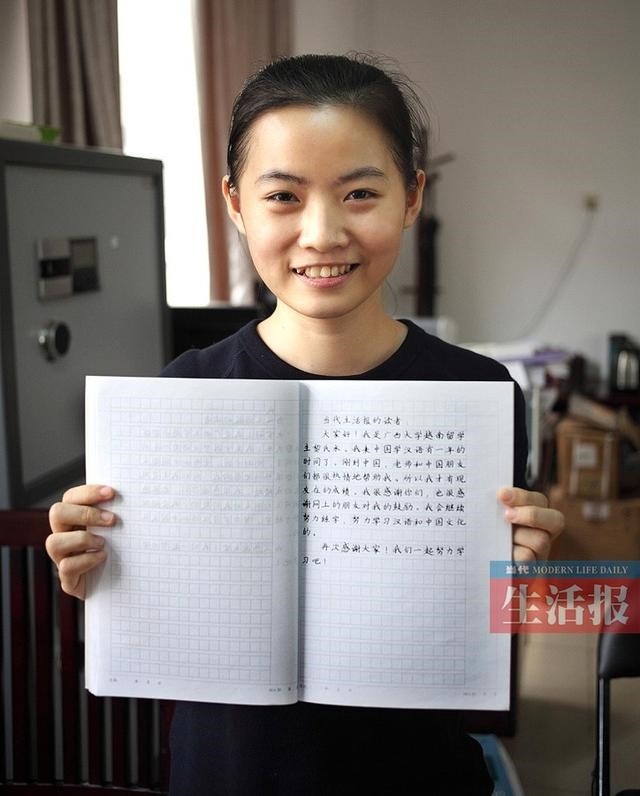 当代生活报的读者
大家好！我是广西大学越南留学
生黎氏禾。我来中国学汉语有一年的
时间了，刚到中国，老师和中国朋友
们都很热情地帮助我。所以我才有现
在的成绩，我很感谢你们，也很感
谢网上的朋友对我的鼓励。我会继续
努力练字，努力学习汉语和中国文化
的。
再次感谢大家！我们一起努力学
习吧！
当代 MODERN LIFE DAILY
生活报